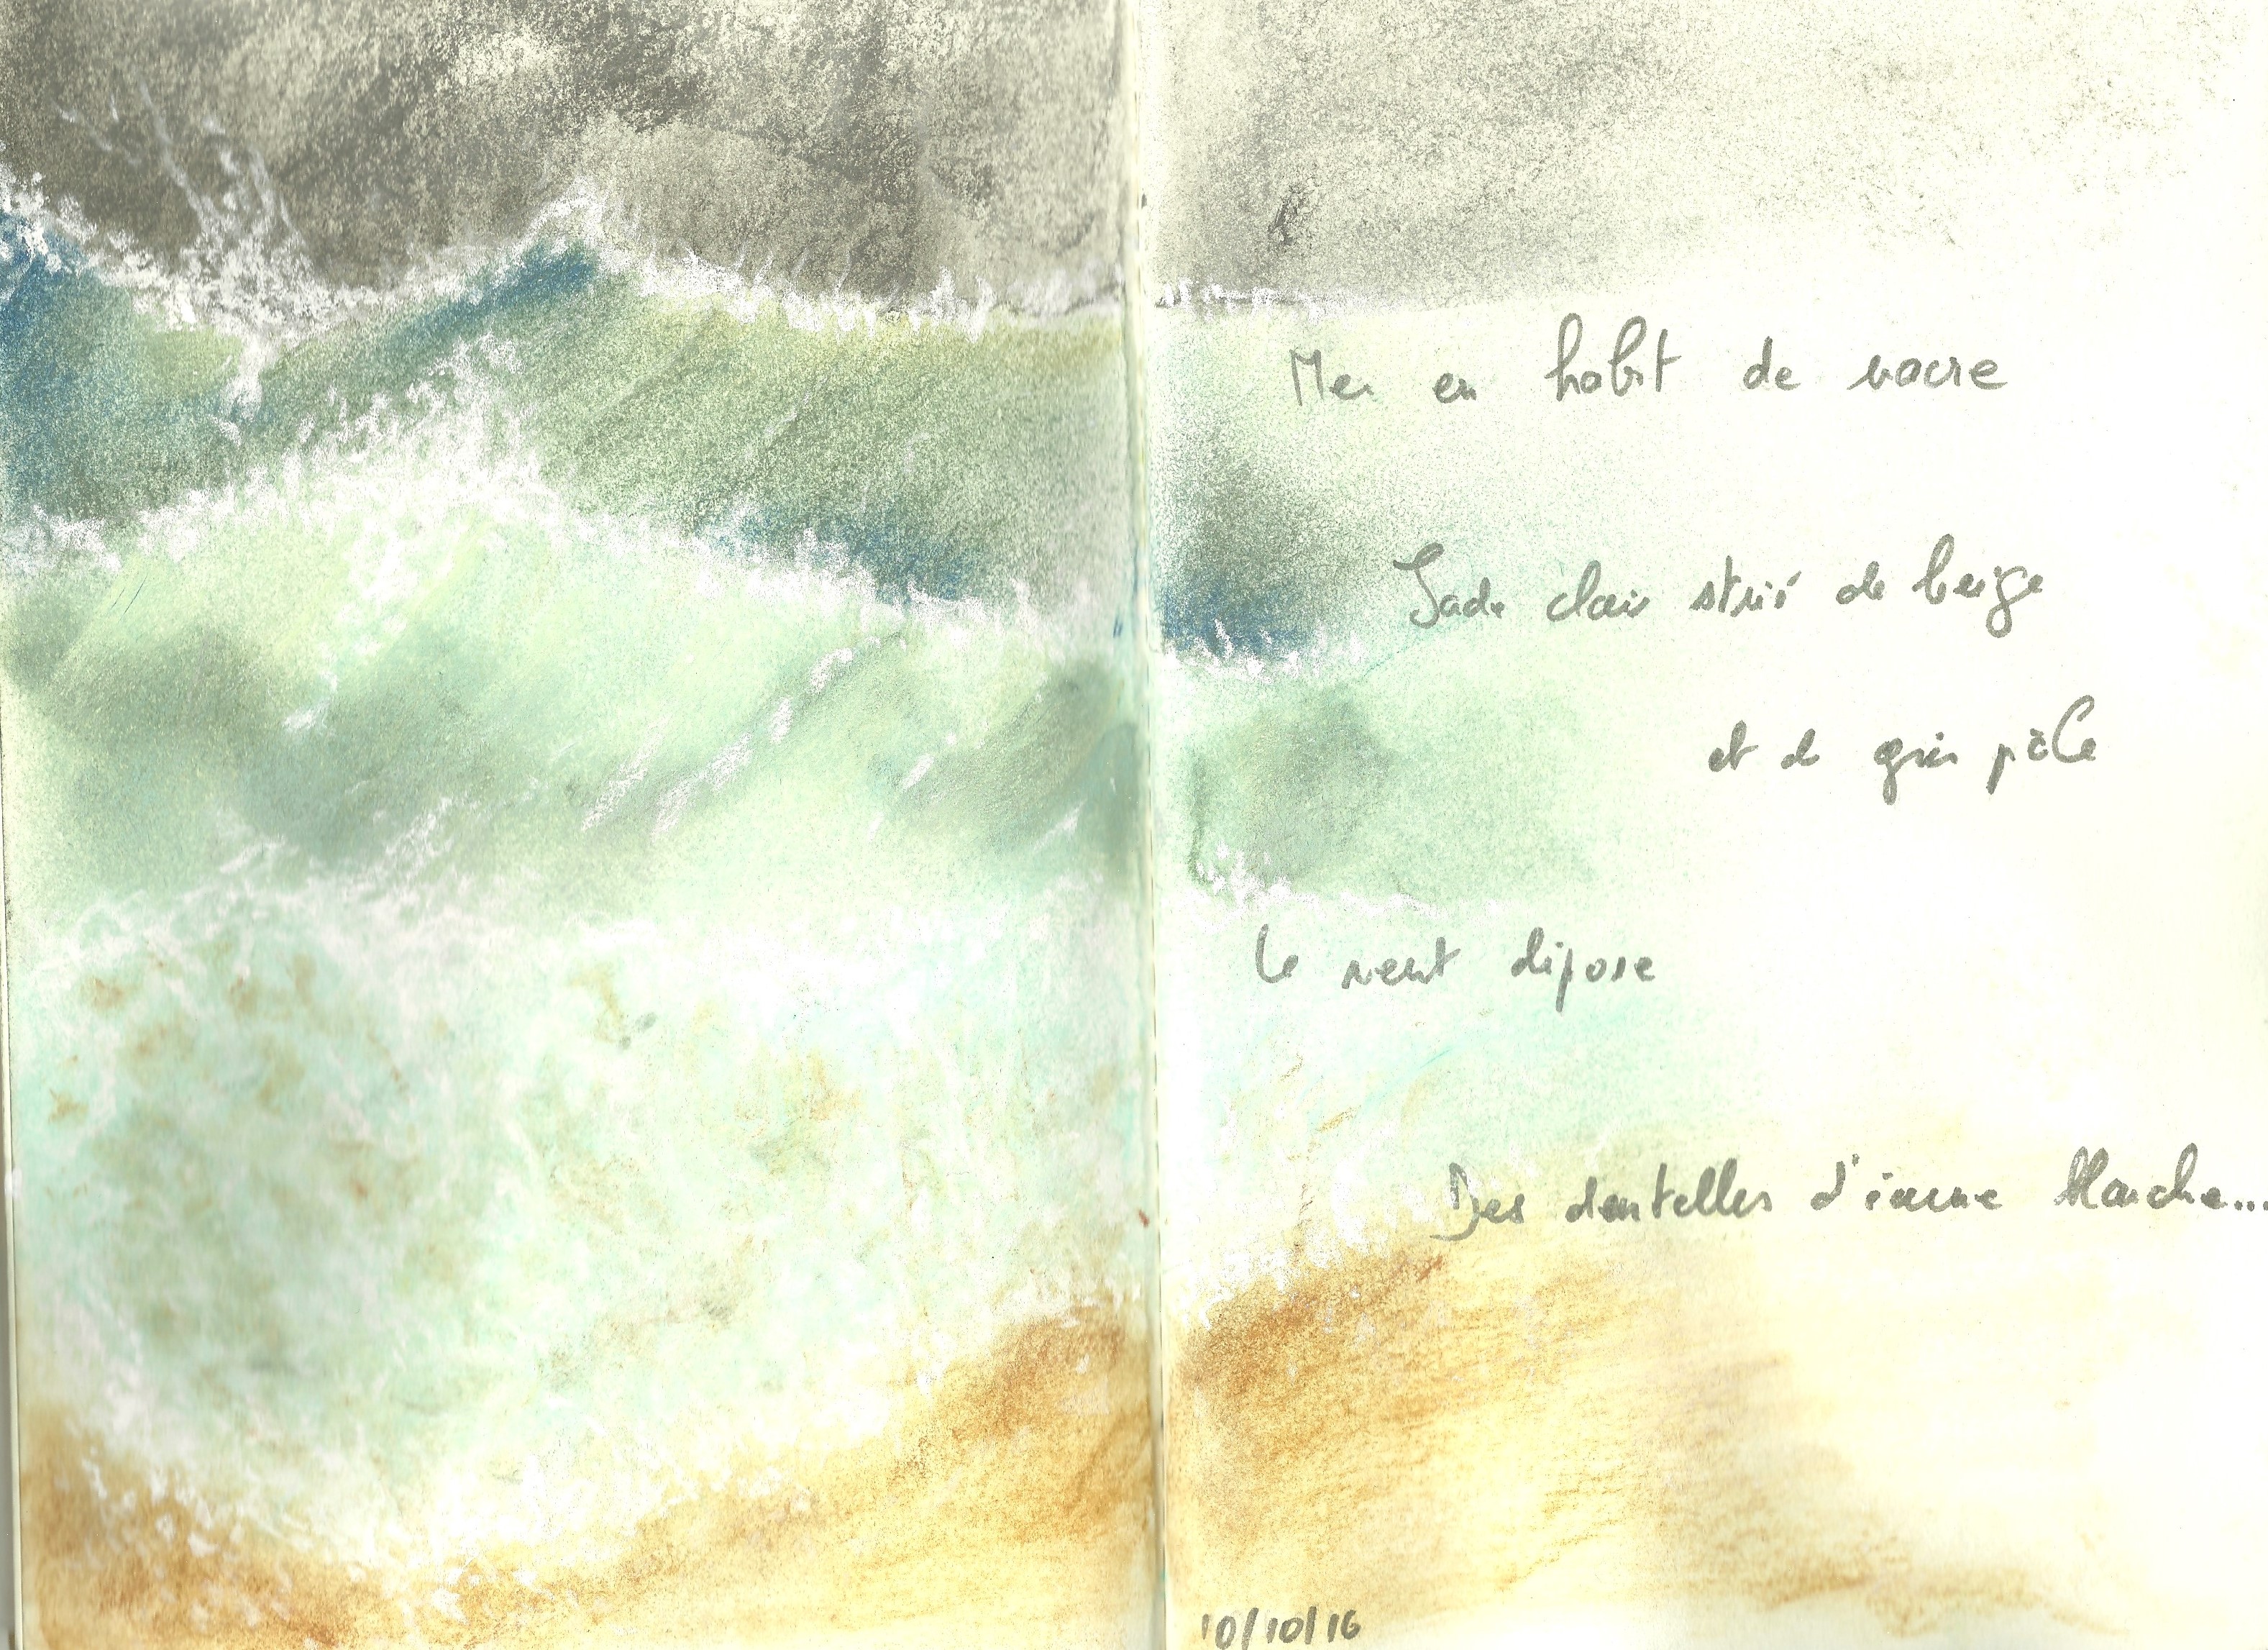 Mer en habit de nacre
Jade clair strié de beige
et de gris pâle
le vent dépose
Des dentelles d'écume blanche...
10/10/16